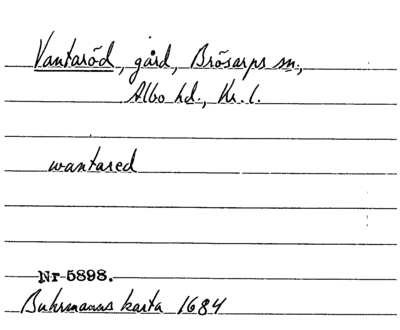 Vantaröd, gård, Brösarps sn.,
Albo hd., Kr. l.
wantared
Nr 5898.
Buhrmanns karta 1684